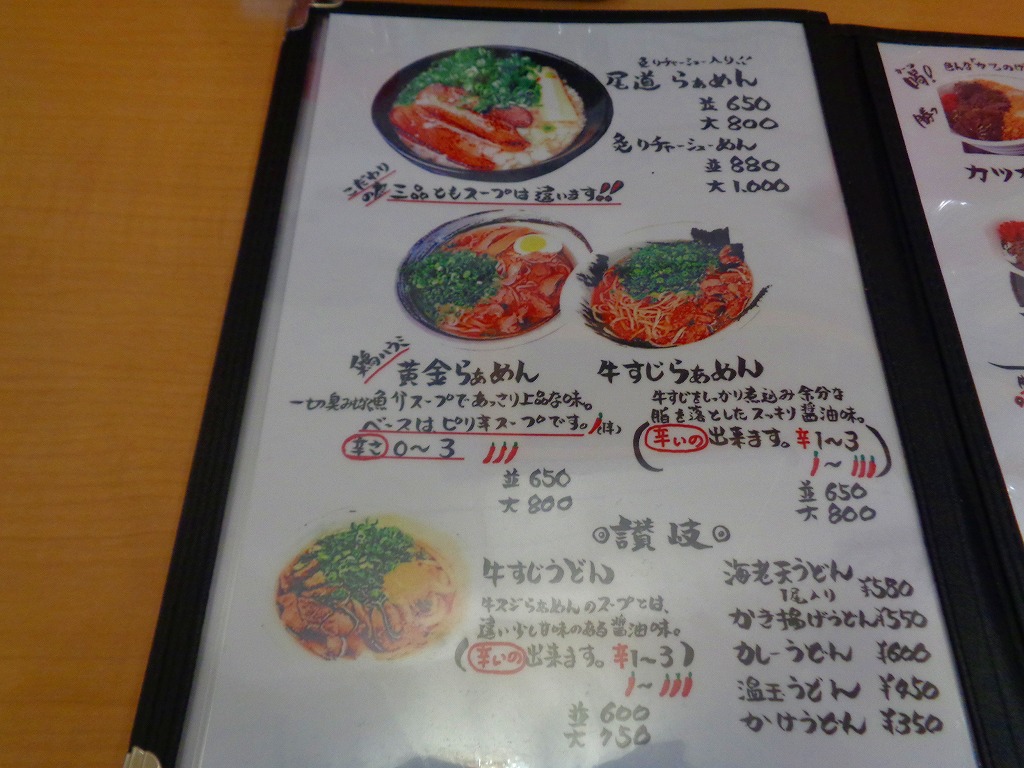 炙りチャーシュー入り
尾道らぁめん
並 650
大 800
炙りチャーシューめん
並 880
大 1,000
こだわりの 三品ともスープは違います!!
黄金らぁめん
一切臭みのない魚介スープであっさり上品な味。
ベースはピリ辛スープです。
辛さ 0〜3
並 650
大 800
牛すじらぁめん
牛すじをしっかり煮込み余分な
脂を落としたスッキリ醤油味。
(辛いの出来ます。辛1〜3
〜 )
並 650
大 800
讃岐
牛すじうどん
牛スジらぁめんのスープとは、
違い少し甘味のある醤油味。
(辛いの出来ます。辛1〜3)
〜
並 600
大 750
海老天うどん
1尾入り ¥580
かき揚げうどん ¥550
カレーうどん ¥600
温玉うどん ¥450
かけうどん ¥350
カツカ